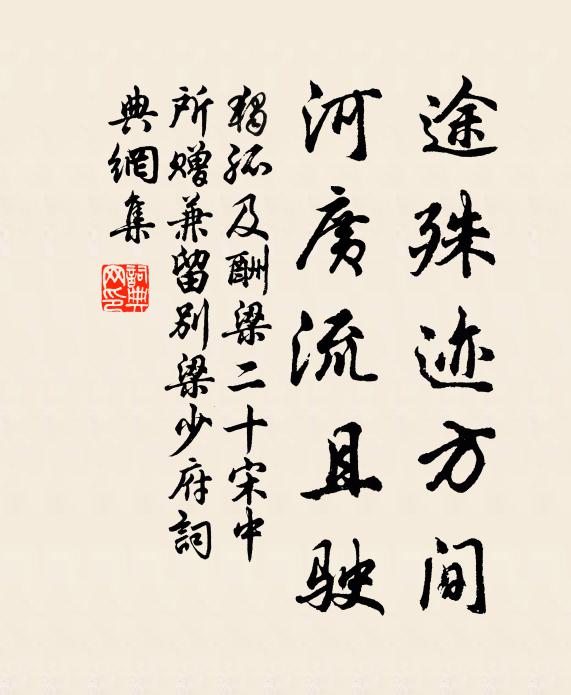 途殊迹方间
河广流且驶
独孤及酬梁二十宋中
所赠兼留别梁少府词
典网集
词典网印